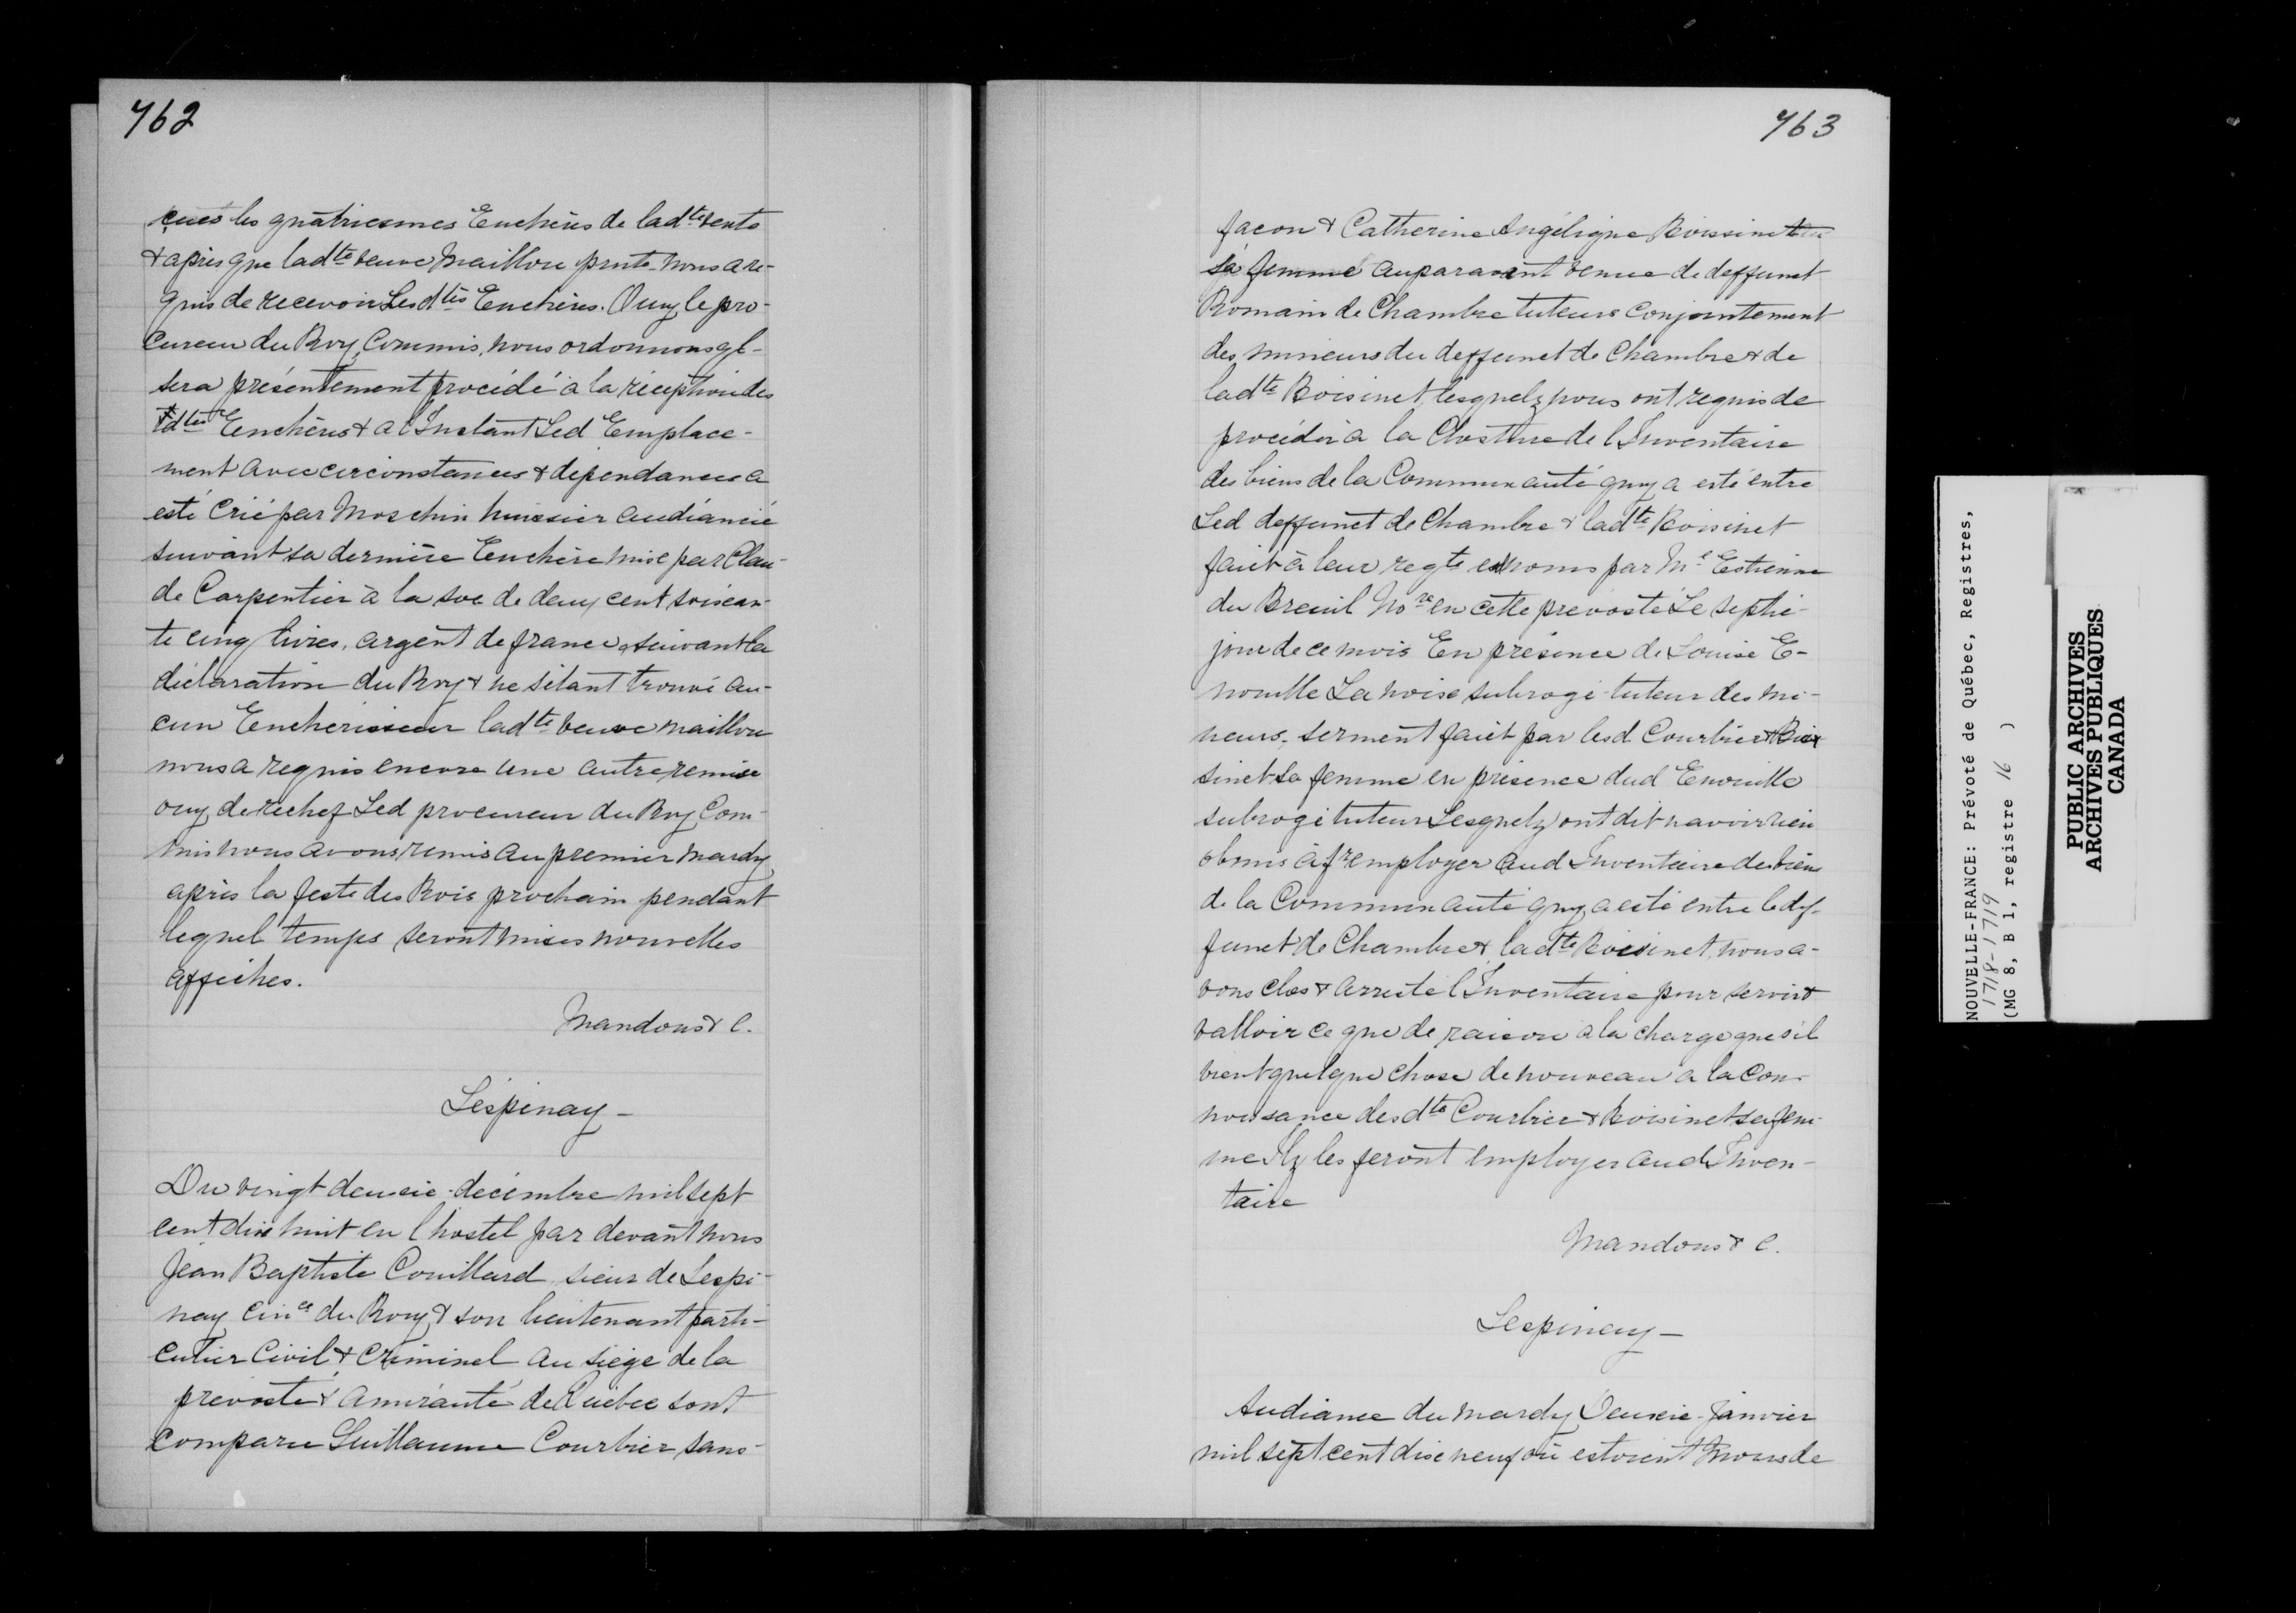 762
çues les quatriesmes Enchères de lad.te vente
& après que lad.te veuve Maillou pnte nous a re-
quis de recevoir Lesd.tes Enchères. Ouy le pro-
cureur du Roy Commis, nous ordonnons q'l-
sera présentement procédé à la réception des
d.tes Enchères & a l'Instant Led Emplace-
ment avec circonstances & dépendances a
esté Crié par Moschin huissier audiancié
suivant sa dernière Enchère mise par Clau-
de Carpentier à la soe de deux cent soixan-
te cinq livres, argent de france, suivant la
déclaration du Roy & ne sétant trouvé au-
cun Encherisseur lad.te veuve maillou
nous a requis encore une autre remise
ouy derechef Led procureur du Roy Com-
mis nous avons remis au premier mardy
après la feste des Rois prochain pendant
lequel temps seront mises nouvelles
affiches.
Mandons & C.
Léspinay -
Du vingt deuxie décembre mil sept
cent dix huit en l'hostel par devant nous
Jean Baptiste Couillard sieur de Lespi-
nay Con.er du Roy & son lieutenant parti-
culier Civil & Criminel au siège de la
prévosté & Amirauté de Québec sont
comparu Guillaume Courbier sans-
763
façon & Catherine Angélique Boissinet
sa femme auparavant venue de deffunct
Romain de Chambre tuteurs Conjointement
des mineurs du deffunct de Chambre & de
lad.te Boisinet, lesquelz nous ont requis de
procéder à la Closture de l'Inventaire
des biens de la Communauté quy a esté entre
Led deffunct de Chambre & lad.te Boisinet
faict à leur reqte esd noms par M.e Estienne
du Breuil No.re en cette prévosté Le septie-
jour de ce mois En présence de Louise E-
nouille Lanoise subrogé-tuteur des mi-
neurs, serment faict par lesd. Courbier & Bois
sinet sa femme en présence dud Enouille
subrogé tuteur Lesquelz ont dit navoir rien
obmis à fre employer aud Inventaire des biens
de la Communauté quy a esté entre led def-
funct de Chambre & lad.te Boisinet, nous a-
vons clos & arresté l'Inventaire pour servir &
valloir ce que de raison à la charge que sil
vient quelque chose de nouveau à la Con-
noissance desd.ts Courbier & Boisinet sa fem-
me Ilz les feront employer aud Inven-
taire
Mandons & C.
Lespinay -
Audiance du mardy Deuxie Janvier
mil sept cent dix neuf où estoient Mons de
NOUVELLE-FRANCE: Prévoté de Québec, Registres,
1718-1719
(MG 8, B 1, registre 16 )
PUBLIC ARCHIVES
ARCHIVES PUBLIQUES
CANADA